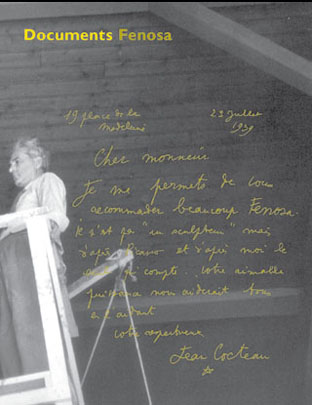 Documents Fenosa
19 place de la
madeleine
23 Juillet
1939
Cher monsieur
Je me permets de vous
recommander beaucoup Fenosa.
Ce n'est pas "un sculpteur" mais
d'après Picasso et d'après moi le
seul qui compte. Votre aimable
puissance nous aiderait tous
en l'aidant
votre respectueux
Jean Cocteau